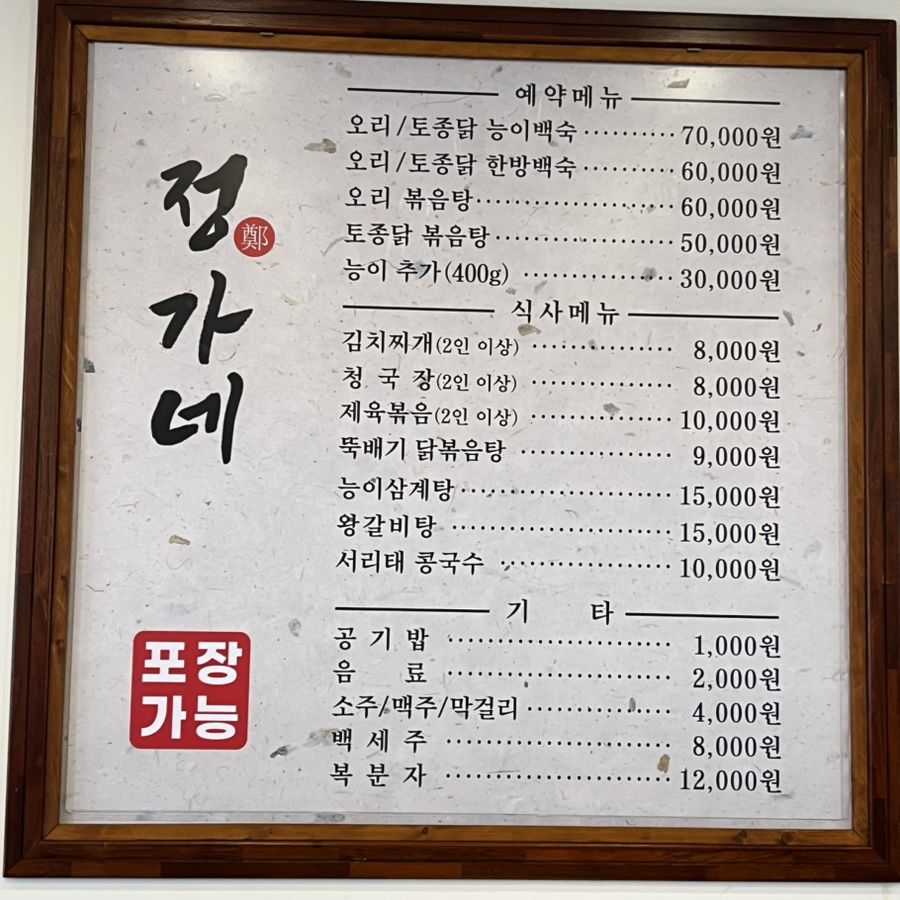 정가네
鄭
포장
가능
예약메뉴
오리/토종닭 능이백숙 70,000원
오리/토종닭 한방백숙 60,000원
오리 볶음탕 60,000원
토종닭 볶음탕 50,000원
능이 추가(400g) 30,000원
식사메뉴
김치찌개(2인 이상) 8,000원
청 국 장(2인 이상) 8,000원
제육볶음(2인 이상) 10,000원
뚝배기 닭볶음탕 9,000원
능이삼계탕 15,000원
왕갈비탕 15,000원
서리태 콩국수 10,000원
기 타
공 기 밥 1,000원
음 료 2,000원
소주/맥주/막걸리 4,000원
백 세 주 8,000원
복 분 자 12,000원